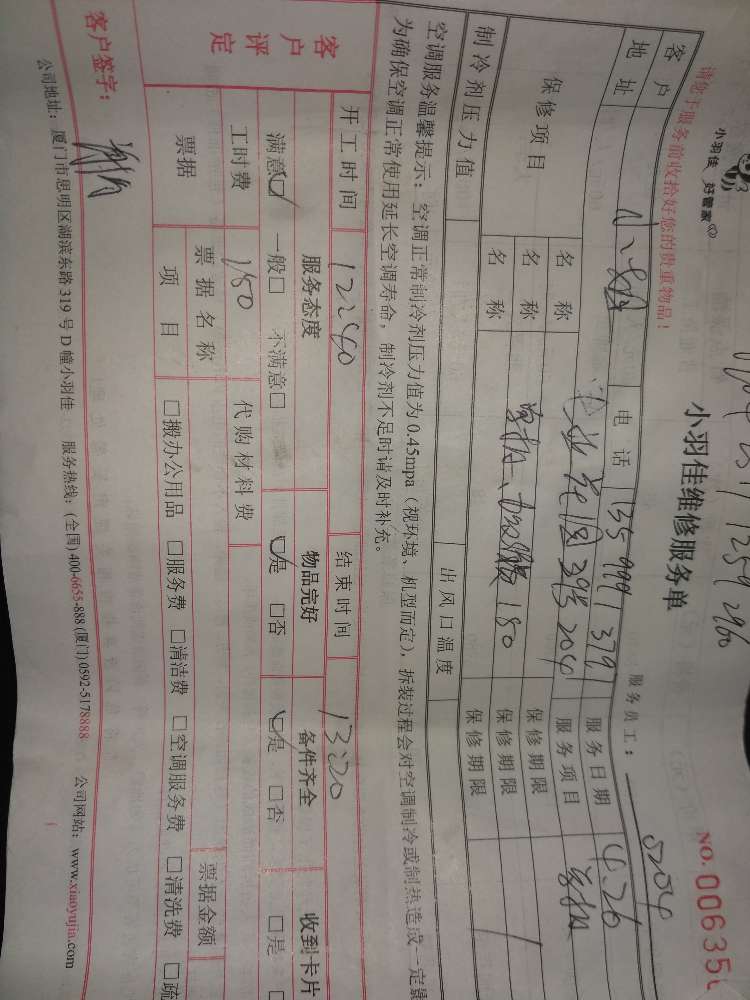 小羽佳 好管家
请您于服务前收拾好您的贵重物品！
小羽佳维修服务单
NO. 00635
服务员工： 0204
客户
电话 135 9991 3791
服务日期 4.26
地址
花园 39号 204
服务项目
保修项目
名称
保修期限
名称 180
保修期限
名称
保修期限
制冷剂压力值
出风口温度
空调服务温馨提示：空调正常制冷剂压力值为0.45mpa（视环境、机型而定），拆装过程会对空调制冷或制热造成一定
为确保空调正常使用延长空调寿命，制冷剂不足时请及时补充。
客户评定
开工时间 12:40
结束时间 13:20
服务态度
物品完好
备件齐全
收到卡片
满意☑ 一般□ 不满意□
☑是 □否
☑是 □否
□是
工时费 180
代购材料费
票据
票据名称
票据金额
项目
□搬办公用品 □服务费 □清洁费 □空调服务费 □清洗费 □疏
客户签字：
公司地址：厦门市思明区湖滨东路319号D幢小羽佳 服务热线：(全国) 400-6655-888 (厦门) 0592-5178888 公司网站：www.xiaoyujia.com